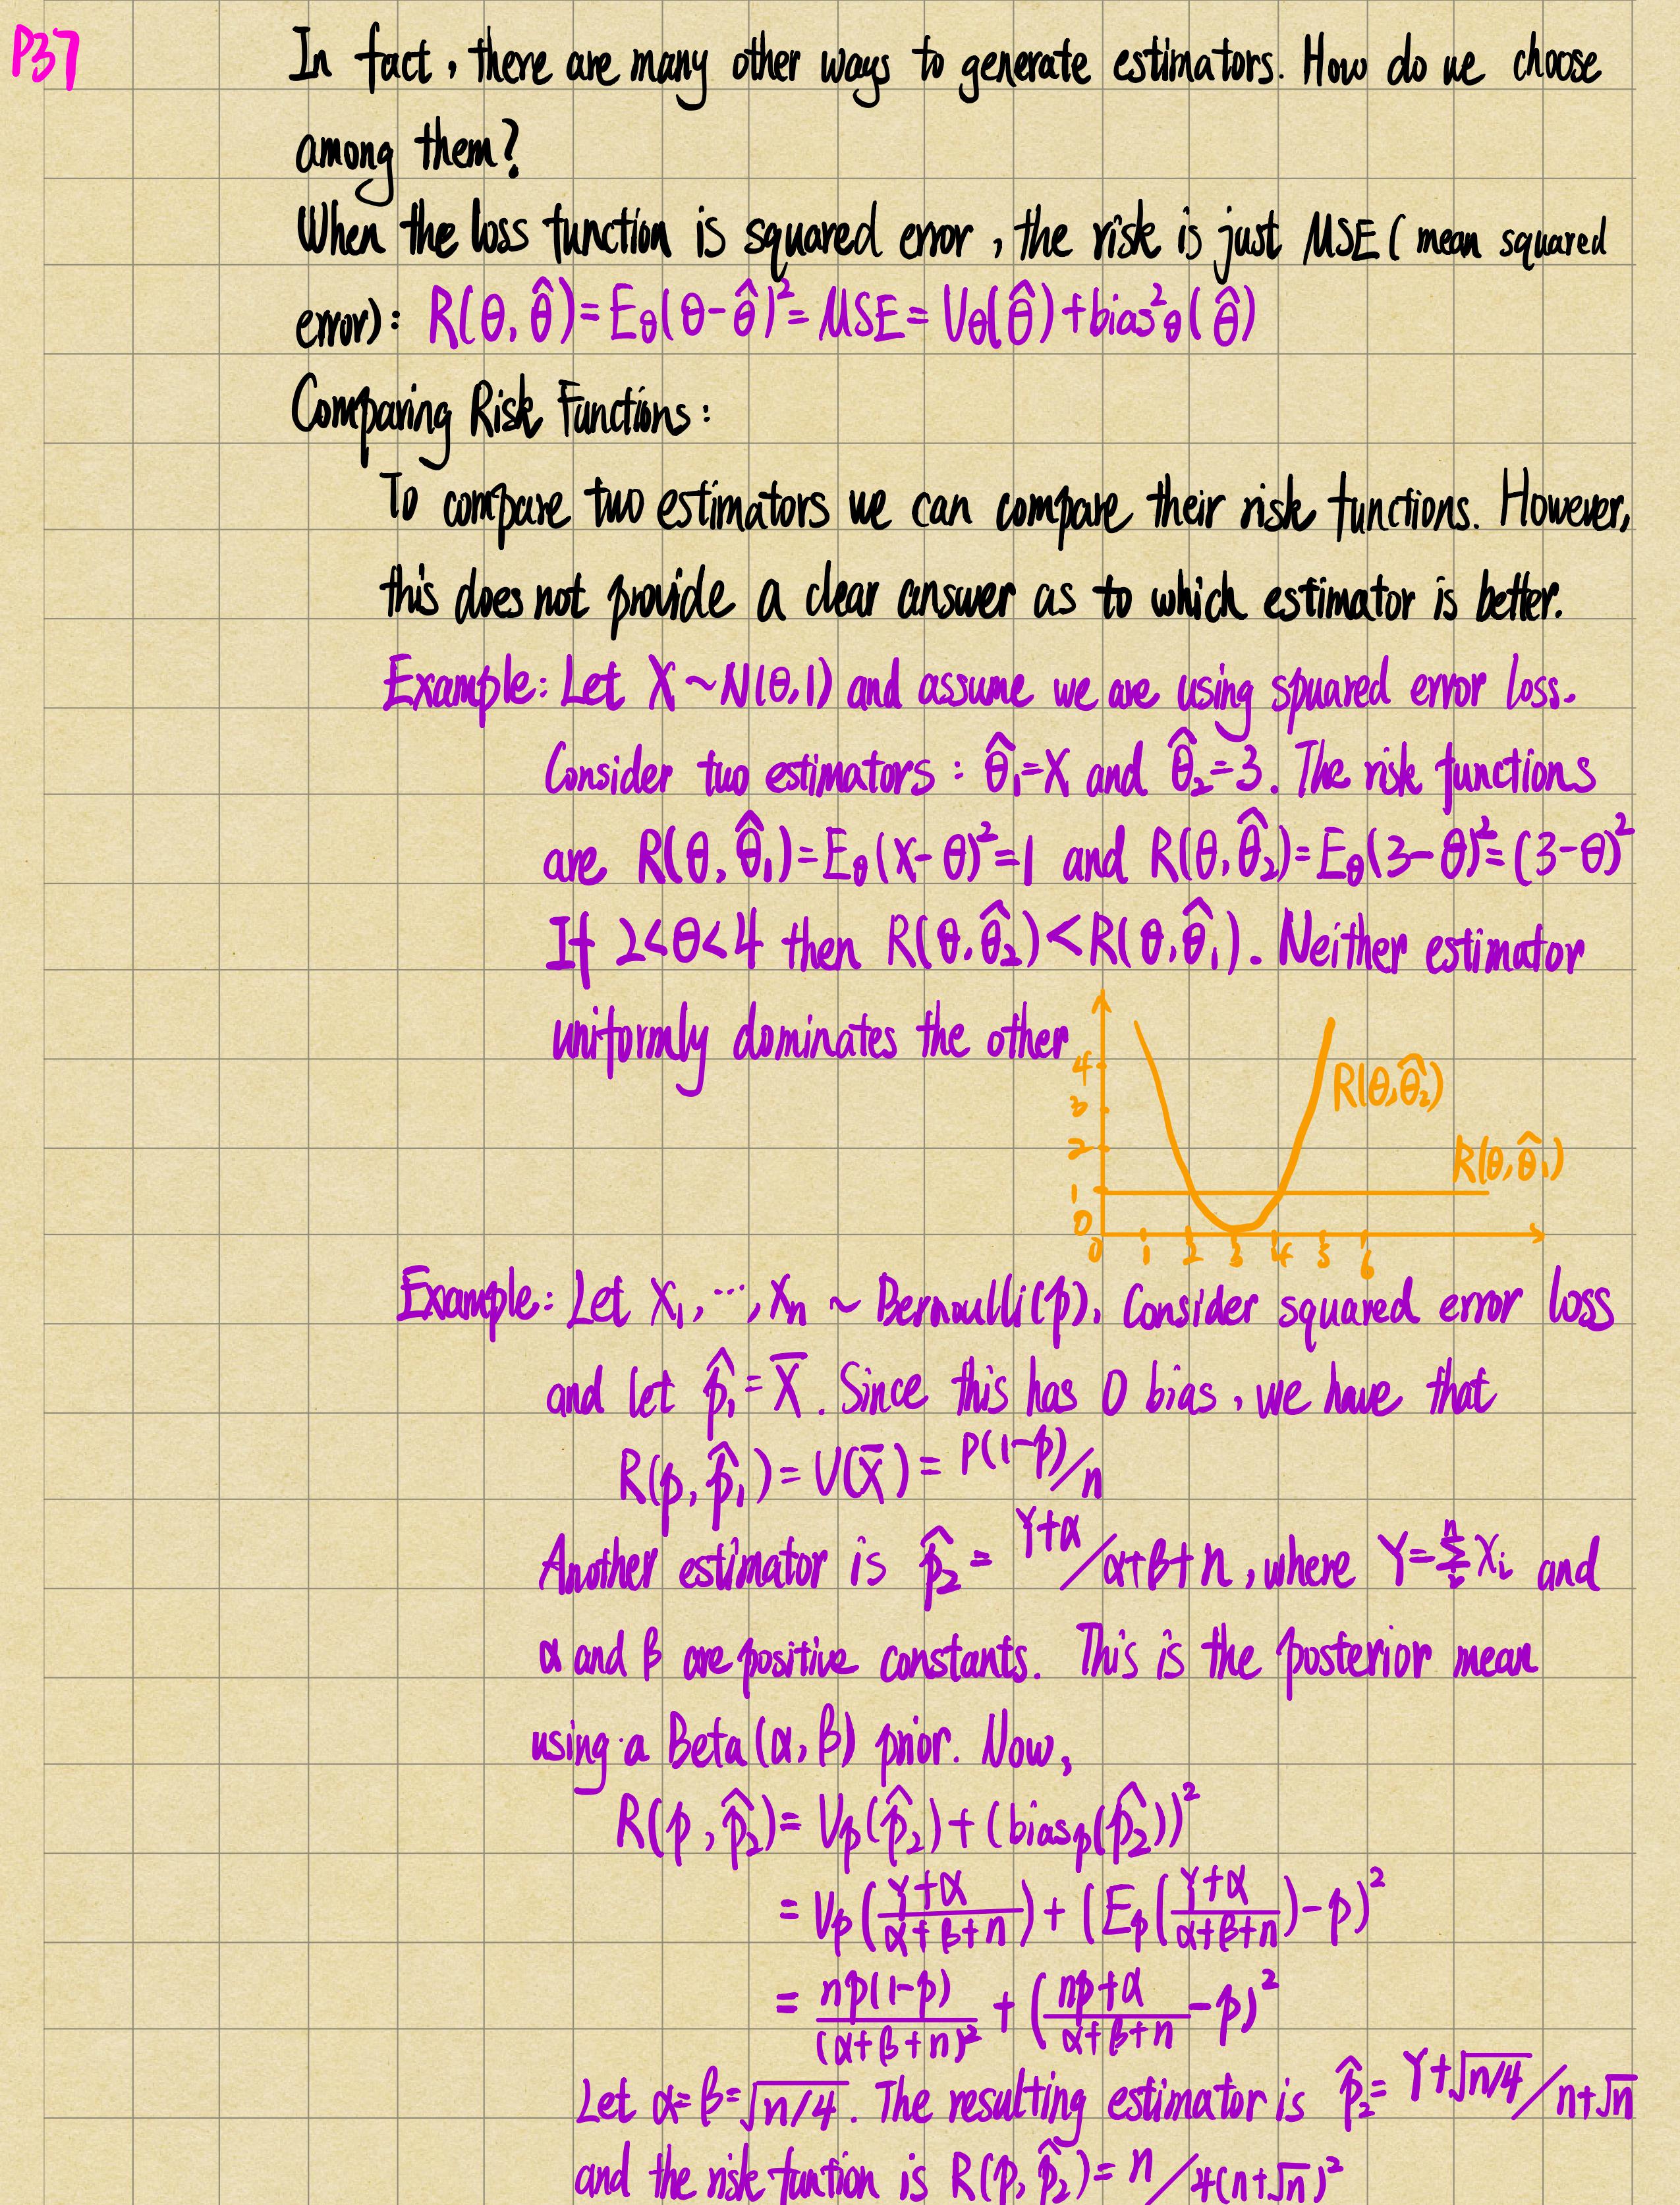 P37
In fact, there are many other ways to generate estimators. How do we choose
among them?
When the loss function is squared error, the risk is just MSE( mean squared
error): R(θ, θ̂)=E_θ(θ-θ̂)²=MSE=V_θ(θ̂)+bias²_θ(θ̂)
Comparing Risk Functions:
To compare two estimators we can compare their risk functions. However,
this does not provide a clear answer as to which estimator is better.
Example: Let X~N(θ,1) and assume we are using spuared error loss.
Consider two estimators: θ̂₁=X and θ̂₂=3. The risk functions
are R(θ, θ̂₁)=E_θ(X-θ)²=1 and R(θ, θ̂₂)=E_θ(3-θ)²=(3-θ)²
If 2<θ<4 then R(θ,θ̂₂)<R(θ,θ̂₁). Neither estimator
uniformly dominates the other
4
3
2
1
0
0 1 2 3 4 5 6
R(θ,θ̂₂)
R(θ,θ̂₁)
Example: Let X₁,···,Xn ~ Bernoulli(p), Consider squared error loss
and let p̂₁=X̄. Since this has 0 bias, we have that
R(p, p̂₁)=V(X̄)=P(1-p)/n
Another estimator is p̂₂= Y+α/α+β+n, where Y=∑ᵢⁿXᵢ and
α and β are positive constants. This is the posterior mean
using a Beta(α, β) prior. Now,
R(p, p̂₂)= V_p(p̂₂)+(bias_p(p̂₂))²
= V_p((Y+α)/(α+β+n))+(E_p((Y+α)/(α+β+n))-p)²
= np(1-p)/(α+β+n)² + ((np+α)/(α+β+n)-p)²
Let α=β=√n/4. The resulting estimator is p̂₂= Y+√n/4/n+√n
and the risk funtion is R(p, p̂₂)= n/4(n+√n)²